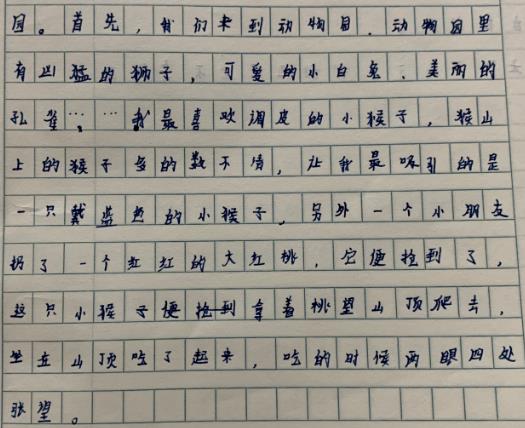 园。首先，我们来到动物园，动物园里
有凶猛的狮子，可爱的小白兔、美丽的
孔雀……我最喜欢调皮的小猴子，猴山
上的猴子多的数不清，让我最吸引的是
一只戴蓝色的小猴子，另外一个小朋友
扔了一个红红的大红桃，它便抢到了，
这只小猴子便抢到拿着桃望山顶爬去，
坐在山顶吃了起来，吃的时候两眼四处
张望。